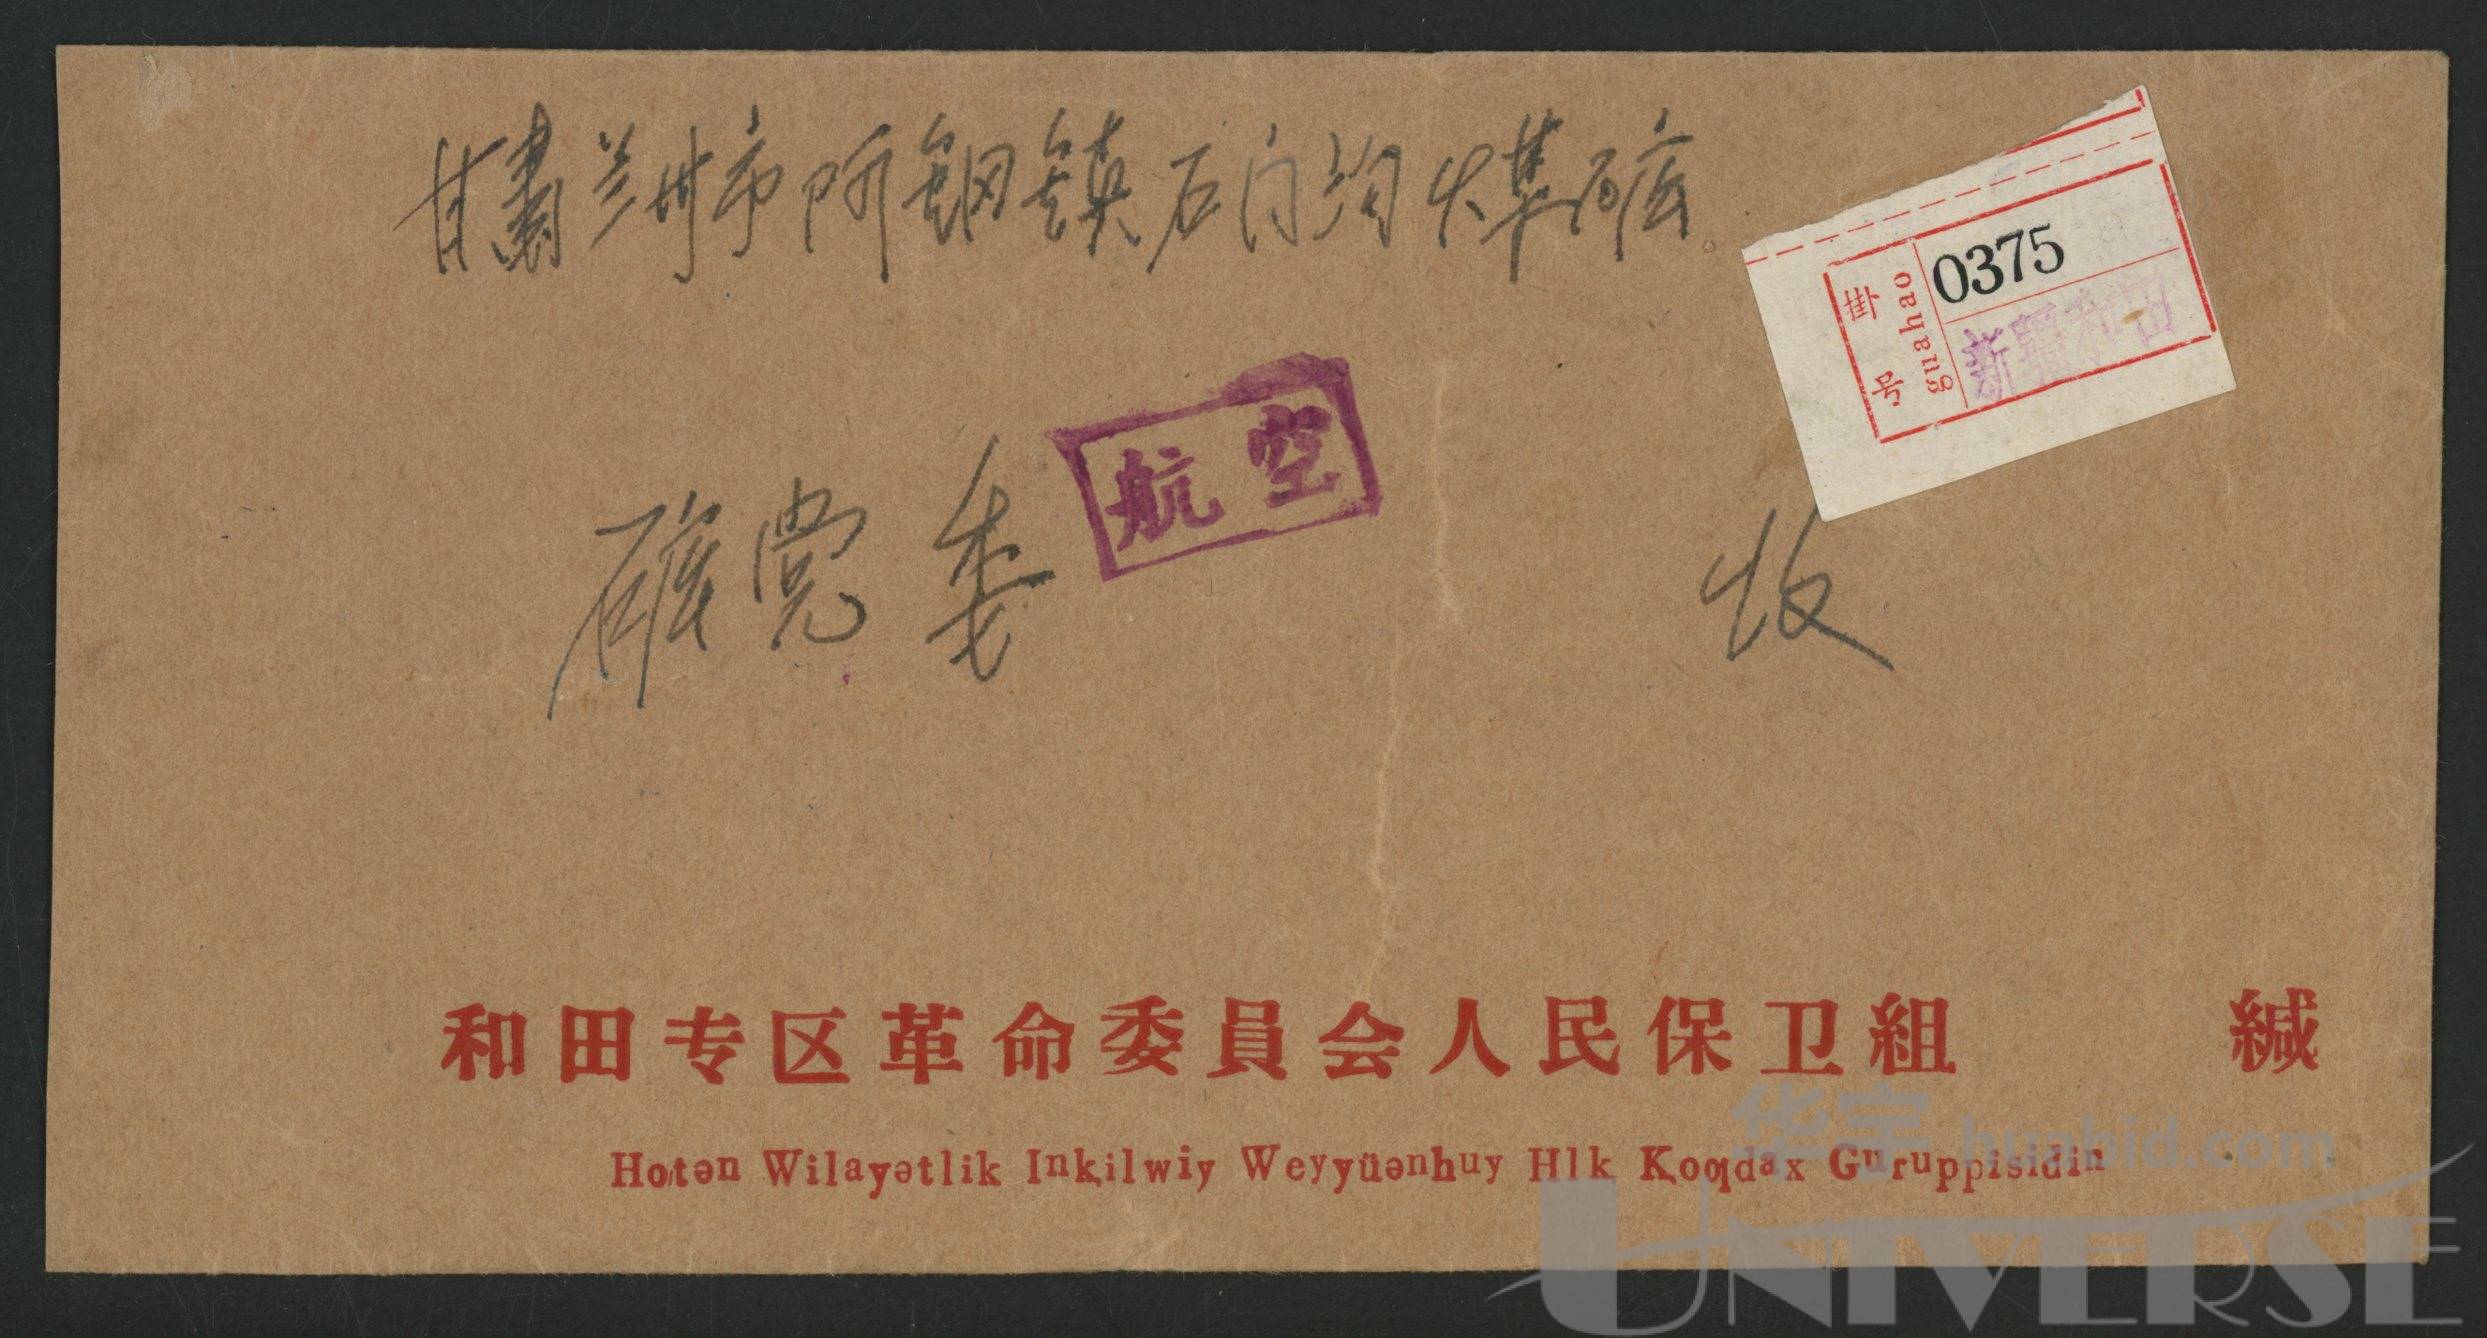 甘肃兰州市阿钢镇石门沟煤矿
0375
掛号
guahao
新疆和田
航空
矿党委 收
和田专区革命委員会人民保卫組 緘
Hotən Wilayətlik Inⱪilwiy Weyyüənhuy Hlk Ⱪoƣdax Guruppisidin
华宇 huabid.com
UNIVERSE